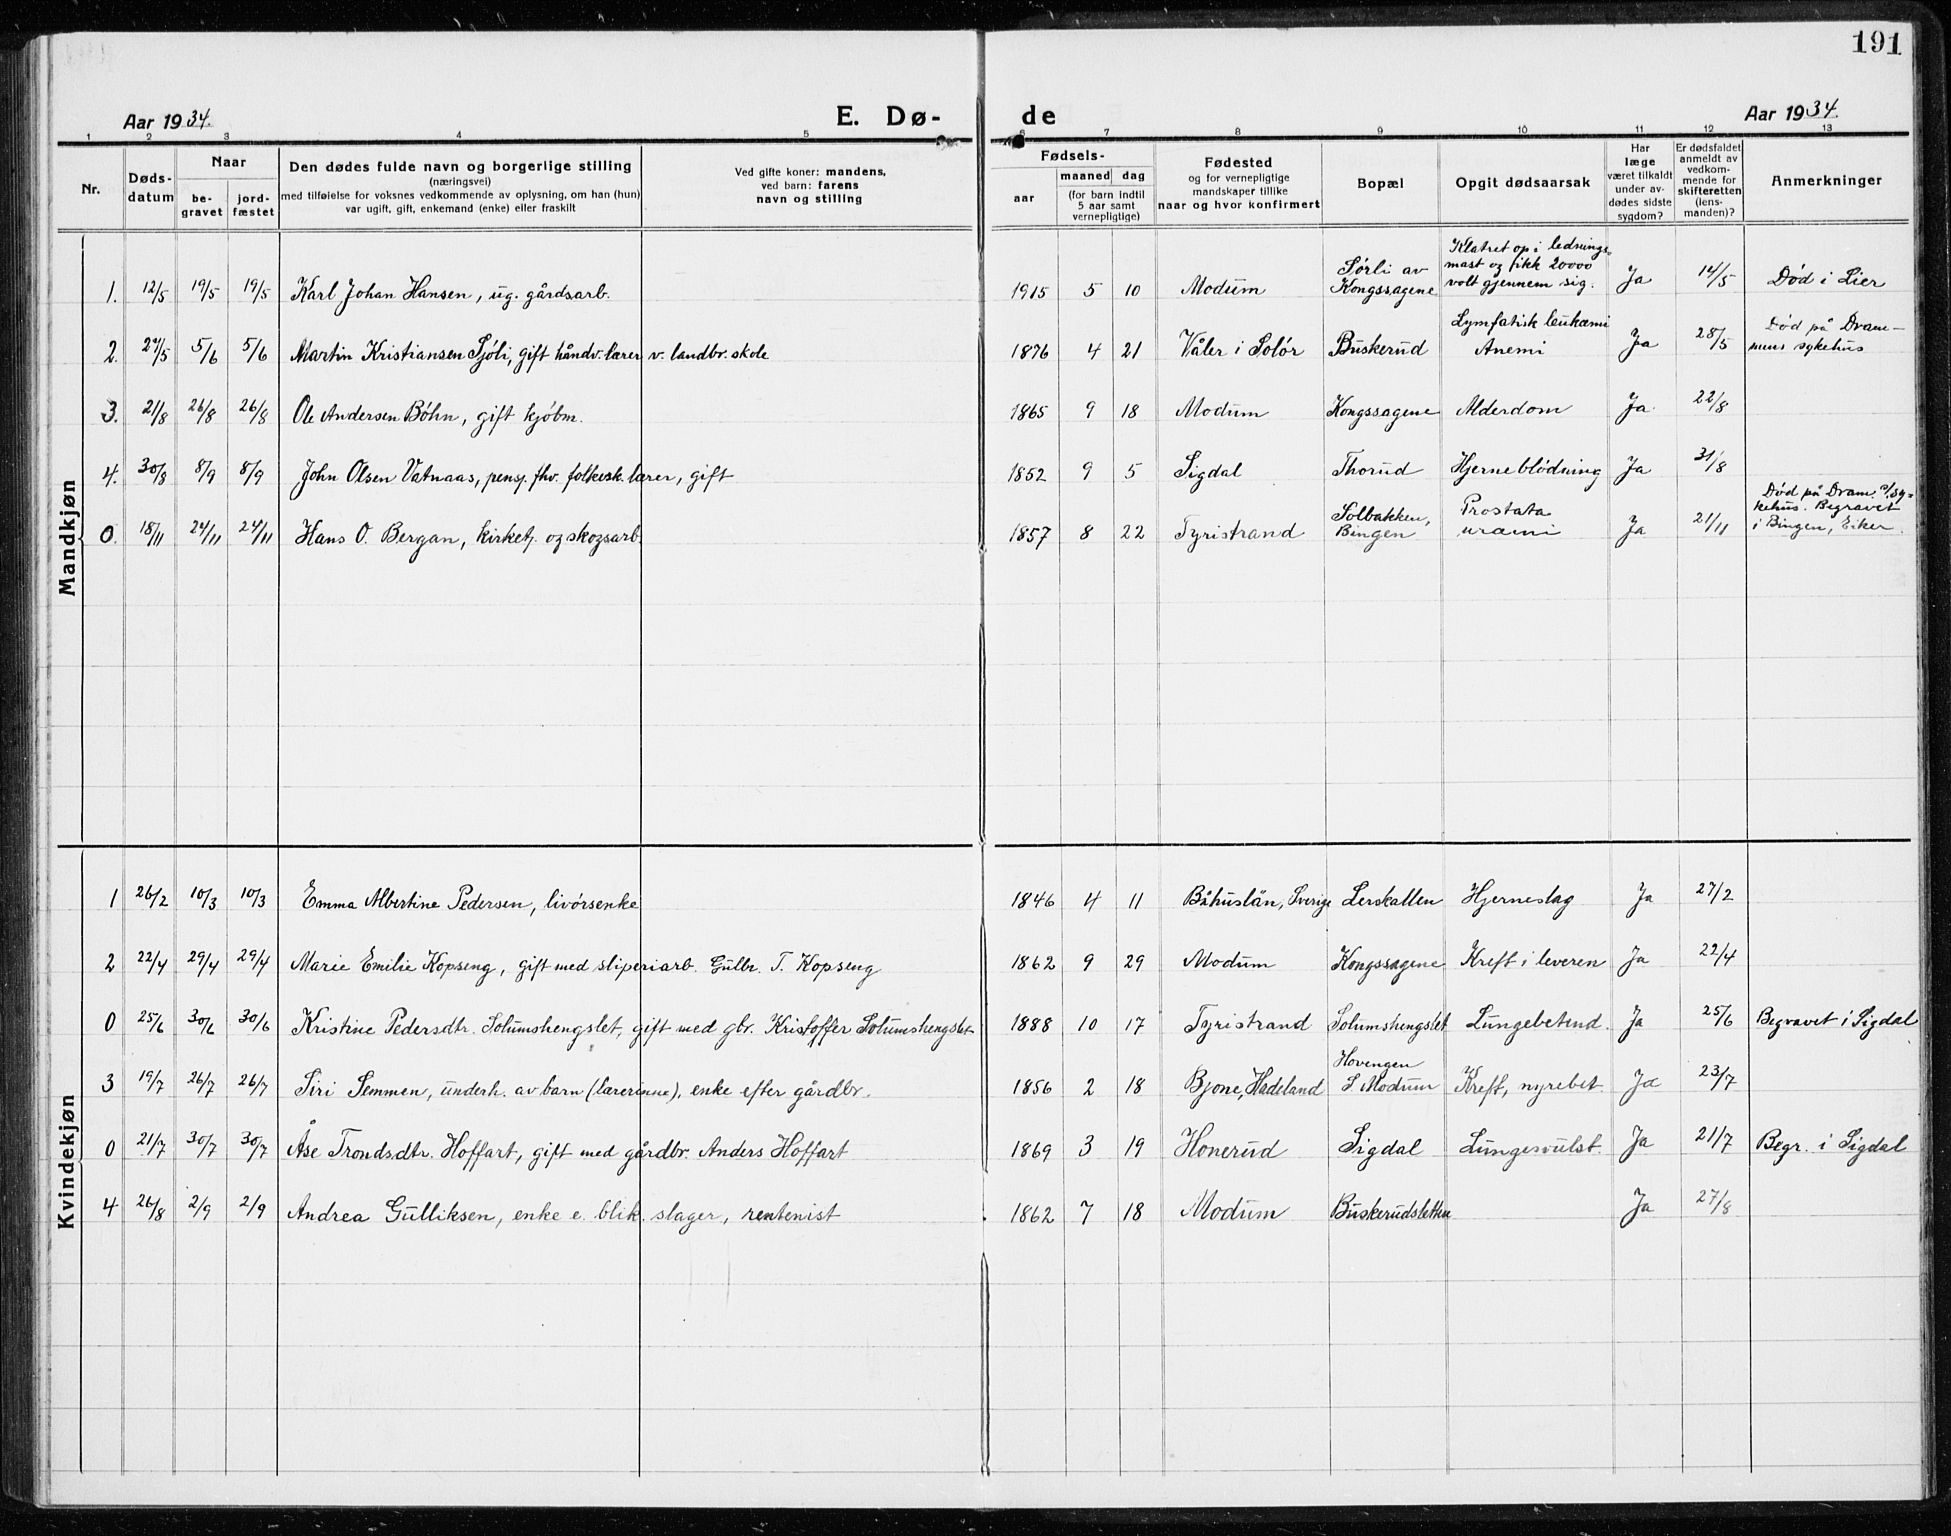 191
Aar 1934.
E. Dø-
de
Aar 1934.
1 2 3 4 5 6 7 8 9 10 11 12 13
Nr.
Døds-
datum
Naar
be-
gravet
jord-
fæstet
Den dødes fulde navn og borgerlige stilling
(næringsvei)
med tilføielse for voksnes vedkommende av oplysning, om han (hun)
var ugift, gift, enkemand (enke) eller fraskilt
Ved gifte koner: mandens,
ved barn: farens
navn og stilling
Fødsels-
aar
maaned dag
(for barn indtil
5 aar samt
vernepligtige)
Fødested
og for vernepligtige
mandskaper tillike
naar og hvor konfirmert
Bopæl
Opgit dødsaarsak
Har
læge
været tilkaldt
under av-
dødes sidste
sygdom?
Er dødsfaldet
anmeldt av
vedkom-
mende for
skifteretten
(lens-
manden)?
Anmerkninger
Mandkjøn
1. 12/5 19/5 19/5 Karl Johan Hansen, ug. gårdsarb. 1915 5 10 Modum Sørli av Kongssagene Klatret op i lednings- mast og fikk 20000 volt gjennem sig. Ja 14/5 Død i Lier
2. 27/5 5/6 5/6 Martin Kristiansen Sjøli, gift håndv. lærer v. landbr. skole 1876 4 21 Våler i Solør Buskerud Lymfatisk leukæmi Anemi Ja 28/5 Død på Dram- mens sykehus
3. 21/8 26/8 26/8 Ole Andersen Bøhn, gift kjøbm. 1865 9 18 Modum Kongssagene Alderdom Ja. 22/8
4. 30/8 8/9 8/9 John Olsen Vatnaas, pensj. fhv. folkesk. lærer, gift 1852 9 5 Sigdal Thorud Hjerneblødning Ja 31/8
0. 18/11 24/11 24/11 Hans O. Bergan, kirketj. og skogsarb. 1857 8 22 Tyristrand Solbakken, Bingen Prostata uræmi Ja 21/11 Død på Dram. sy- kehus. Begravet i Bingen, Eiker.
Kvindekjøn
1 26/2 10/3 10/3 Emma Albertine Pedersen, livørsenke 1846 4 11 Båhuslän, Sverige Lerskallen Hjerneslag Ja 27/2
2 22/4 29/4 29/4 Marie Emilie Kopseng, gift med sliperiarb. Gulbr. T. Kopseng 1862 9 29 Modum Kongssagene Kreft i leveren Ja 22/4
0 25/6 30/6 30/6 Kristine Pedersdtr. Solumshengslet, gift med gbr. Kristoffer Solumshengslet 1888 10 17 Tyristrand Solumshengslet Lungebetend. Ja 25/6 Begravet i Sigdal
3 19/7 26/7 26/7 Siri Semmen, underh. av barn (lærerinne), enke efter gårdbr. 1856 2 18 Bjone, Hadeland Hovengen S. Modum Kreft, nyrebet. Ja 23/7
0 21/7 30/7 30/7 Åse Trondsdtr. Hoffart, gift med gårdbr. Anders Hoffart 1869 3 19 Honerud Sigdal Lungesvulst. Ja 21/7 Begr. i Sigdal
4 26/8 2/9 2/9 Andrea Gulliksen, enke e. blik. slager, rentenist 1862 7 18 Modum Buskerudsletten Ja 27/8